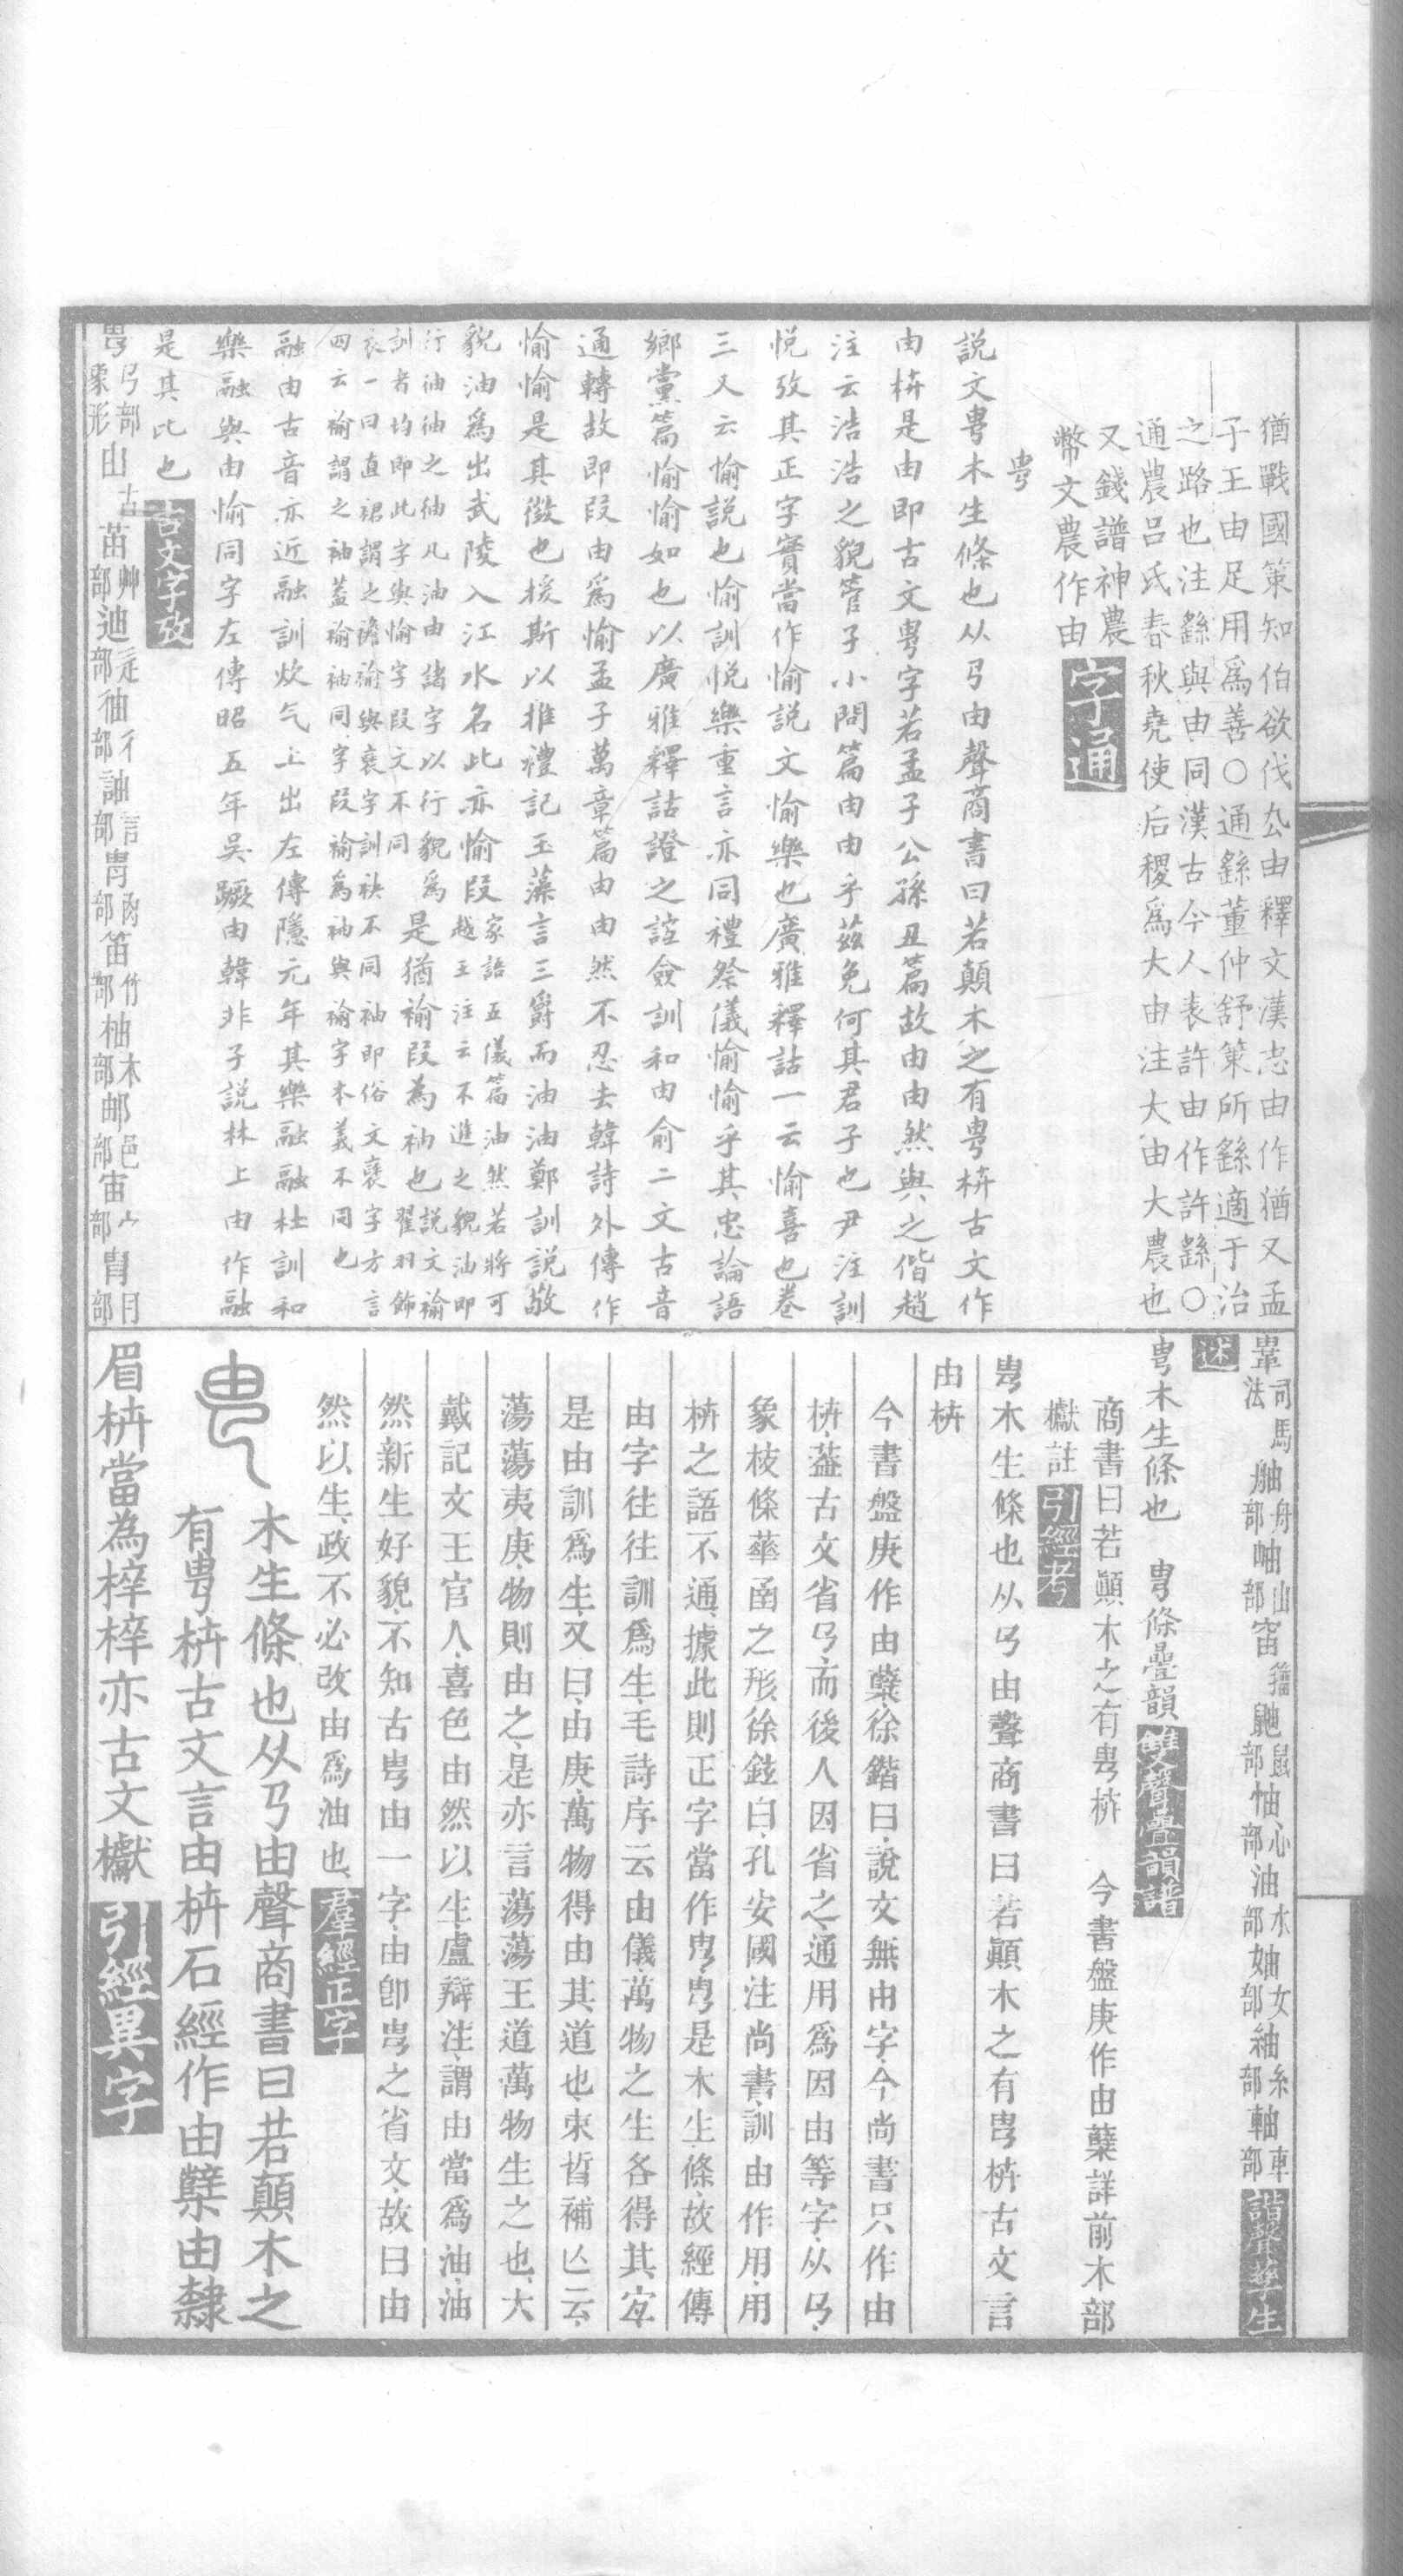 猶戰國策知伯欲伐厹由釋文漢志由作猶又孟
子王由足用爲善〇通繇董仲舒策所繇適于治
之路也注繇與由同漢古今人表許由作許繇〇
通農呂氏春秋堯使后稷爲大由注大由大農也
又錢譜神農
幣文農作由字通
甹
説文甹木生條也从𢎘由聲商書曰若顛木之有甹枿古文作
由枿是由即古文甹字若孟子公孫丑篇故由由然與之偕趙
注云浩浩之貌管子小問篇由由乎茲免何其君子也尹注訓
悦攷其正字實當作愉説文愉樂也廣雅釋詁一云愉喜也卷
三又云愉説也愉訓悦樂重言亦同禮祭儀愉愉乎其忠論語
鄉黨篇愉愉如也以廣雅釋詁證之諠僉訓和由俞二文古音
通轉故即叚由爲愉孟子萬章篇由由然不忍去韓詩外傳作
愉愉是其徵也援斯以推禮記玉藻言三爵而油油鄭訓説敬
貌油爲出武陵入江水名此亦愉叚家語五儀篇油然若將可
越王注云不進之貌油即
行㳛㳛之㳛凡油由諸字以行貌爲是猶褕叚為䄂也説文褕
翟羽飾
訓者均即此字與愉字叚文不同
衣一曰直裾謂之襜褕與褎字訓袂不同袖即俗文褎字方言
四云褕謂之袖蓋褕袖同字叚褕為袖與褕字本義不同也
融由古音亦近融訓炊气上出左傳隱元年其樂融融杜訓和
樂融與由愉同字左傳昭五年吳蹶由韓非子説林上由作融
是其比也古文字攷
甹𢎘部象形由古苗艸部迪辵部㳛彳部訷言部𠧪部笛竹部柚木部邮邑部宙宀部冑冃部
𩊄司馬法舳舟部岫山部宙籀鼬鼠部怞心部油水部妯女部紬糸部軸車部諧聲孳生
述
甹木生條也　甹條疊韻雙聲疊韻譜
商書曰若顛木之有甹枿　今書盤庚作由蘗詳前木部
㰕註引經考
甹木生條也从𢎘由聲商書曰若顛木之有甹枿古文言
由枿
今書盤庚作由蘗徐鍇曰說文無由字今尚書只作由
枿葢古文省𢎘而後人因省之通用爲因由等字从𢎘
象枝條華函之形徐鉉曰孔安國注尚書訓由作用用
枿之語不通據此則正字當作甹甹是木生條故經傳
由字往往訓爲生毛詩序云由儀萬物之生各得其宜
是由訓爲生又曰由庚萬物得由其道也束晳補亡云
蕩蕩夷庚物則由之是亦言蕩蕩王道萬物生之也大
戴記文王官人喜色由然以生盧辯注謂由當爲油油
然新生好貌不知古甹由一字由卽甹之省文故曰由
然以生政不必改由爲油也羣經正字
甹
木生條也从𢎘由聲商書曰若顛木之
有甹枿古文言由枿石經作由櫱由隸
眉枿當為梓梓亦古文㰕引經異字